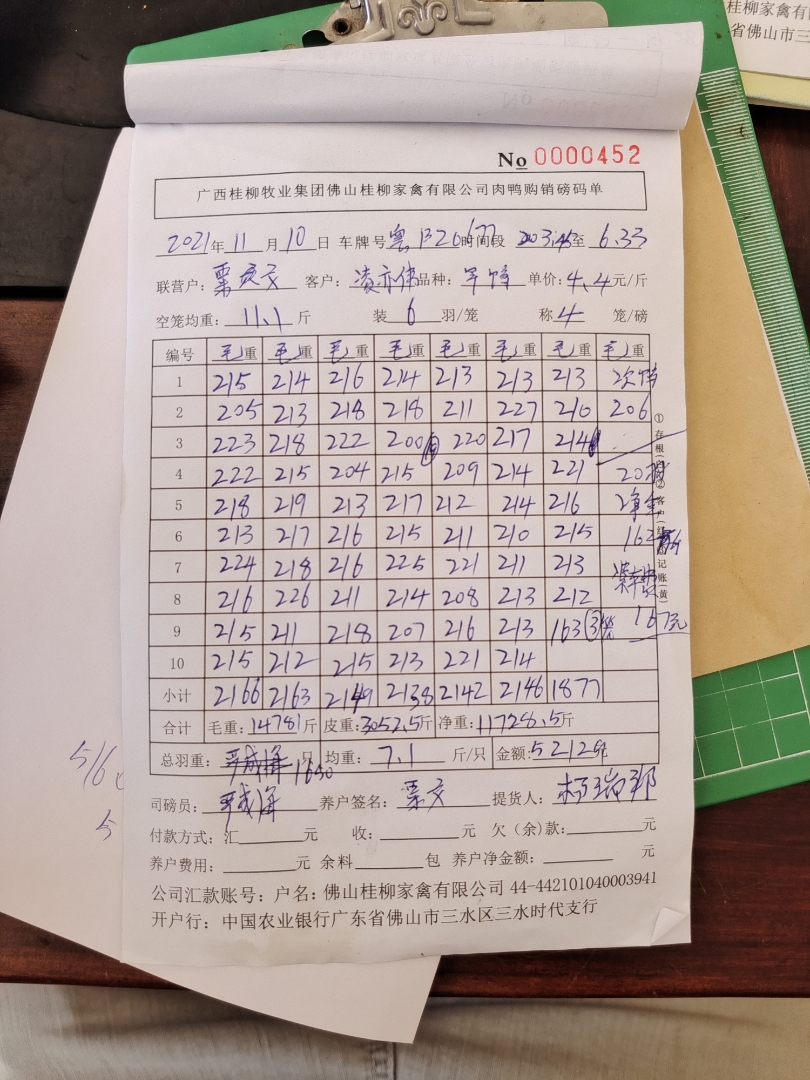 桂柳家禽有
省佛山市三
No 0000452
广西桂柳牧业集团佛山桂柳家禽有限公司肉鸭购销磅码单
2021年 11月 10日 车牌号 粤 时间段 3:45至 6.33
联营户: 客户: 凌亦伟 品种: 单价: 4.4元/斤
空笼均重: 11.1斤 装 6 羽/笼 称 4 笼/磅
编号 毛重 毛重 毛重 毛重 毛重 毛重 毛重 毛重
1 215 214 216 214 213 213 213 次
2 205 213 218 218 211 227 210 206
3 223 218 222 200 220 217 214
4 222 215 204 215 209 214 221 20
5 218 219 213 217 212 214 216 净重
6 213 217 216 215 211 210 215 162
7 224 218 216 225 221 211 213
8 216 226 211 214 208 213 212
9 215 211 218 207 216 213 163 ③笼 167元
10 215 212 215 213 221 214
小计 2166 2163 2149 2138 2142 2146 1877
合计 毛重: 14781斤 皮重: 3052.5斤 净重: 11728.5斤
总羽重: 1650 只 均重: 7.1 斤/只 金额: 5212
司磅员: 养户签名: 提货人:
付款方式: 汇 元 收: 元 欠(余)款: 元
养户费用: 元 余料 包 养户净金额: 元
公司汇款账号: 户名: 佛山桂柳家禽有限公司 44-442101040003941
开户行: 中国农业银行广东省佛山市三水区三水时代支行
①存根 ②客户(红) 记账(黄)